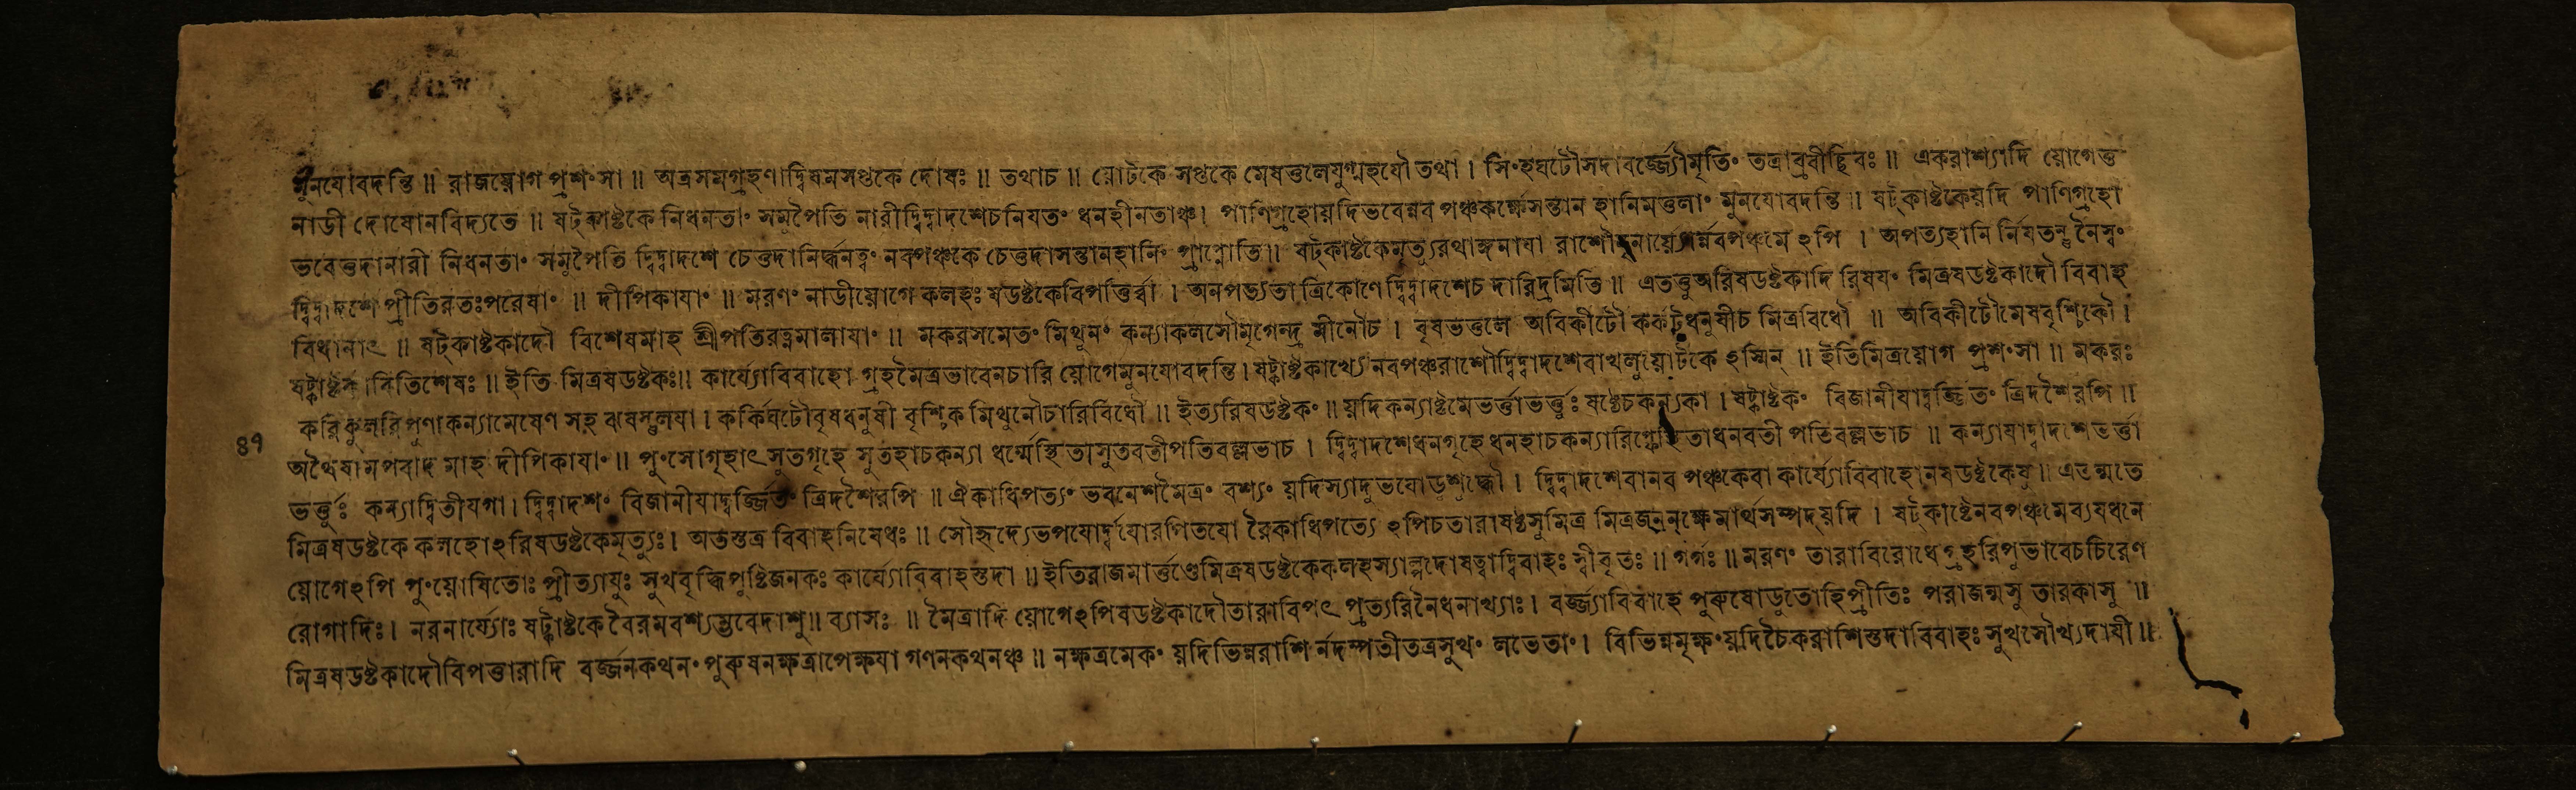 মুনযোবদন্তি ॥ রাজয়োগ প্রশংসা ॥ অত্রসমগ্রহণাদ্বিষমসপ্তকে দোষঃ ॥ তথাচ ॥ য়োটকে সপ্তকে মেষতুলেযুগ্মহযৌ তথা । সিংহঘটৌসদাবর্জ্জ্যৌমৃতিং তত্রাব্রবীচ্ছিবঃ ॥ একরাশ্যাদি য়োগেতু
নাডী দোষোনবিদ্যতে ॥ ষট্কাষ্টকে নিধনতাং সমুপৈতি নারীদ্বিদ্বাদশেচনিযতং ধনহীনতাঞ্চ। পাণিগ্রহোয়দিভবেন্নব পঞ্চকর্ক্ষেসন্তান হানিমতুলাং মুনযোবদন্তি ॥ ষট্কাষ্টকেয়দি পাণিগ্রহো
ভবেত্তদানারী নিধনতাং সমুপৈতি দ্বিদ্বাদশে চেত্তদানির্দ্ধনত্বং নবপঞ্চকে চেত্তদাসন্তানহানিং প্রাপ্নোতি॥ ষট্কাষ্টকেমৃত্যুরথাঙ্গনাযা রাশৌ নবপঞ্চমে ঽপি । অপত্যহানি র্নিযতন্তু নৈস্বং
দ্বিদ্বাদশে প্রীতিরতঃপরেষাং ॥ দীপিকাযাং ॥ মরণং নাডীয়োগে কলহঃ ষডষ্টকেবিপত্তির্ব্বা । অনপত্যতা ত্রিকোণে দ্বিদ্বাদশেচ দারিদ্রমিতি ॥ এতত্তুঅরিষডষ্টকাদি বিষযং মিত্রষডষ্টকাদৌ বিবাহ
বিধানাৎ ॥ ষট্কাষ্টকাদৌ বিশেষমাহ শ্রীপতিরত্নমালাযাং ॥ মকরসমেতং মিথুনং কন্যাকলসৌমৃগেন্দ্র মীনৌচ । বৃষভতুলে অবিকীটৌ কর্কটধনুষীচ মিত্রবিধৌ ॥ অবিকীটৌমেষবৃশ্চিকৌ ।
ষট্কাষ্টকাবিতিশেষঃ ॥ ইতি মিত্রষডষ্টকঃ॥ কার্য্যোবিবাহো গ্রহমৈত্রভাবেনচারি য়োগেমুনযোবদন্তি । ষট্কাষ্টকাখ্যে নবপঞ্চরাশৌদ্বিদ্বাদশেবাখলুয়োটকে ঽস্মিন্ ॥ ইতিমিত্রয়োগ প্রশংসা ॥ মকরঃ
করিকুলরিপুণাকন্যামেষেণ সহ ঝষস্তুলযা । কর্কিঘটৌবৃষধনুষী বৃশ্চিক মিথুনৌচারিবিধৌ ॥ ইত্যরিষডষ্টকং ॥ য়দিকন্যাষ্টমেভর্ত্তাভর্ত্তুঃ ষষ্ঠেচকন্যকা । ষট্কাষ্টকং বিজানীযাদ্বর্জ্জিতং ত্রিদশৈরপি ॥
৪৭ অথৈষামপবাদ মাহ দীপিকাযাং ॥ পুংসোগৃহাৎসুতগৃহে সুতহাচকন্যা ধর্ম্মেস্থিতাসুতবতীপতিবল্লভাচ । দ্বিদ্বাদশেধনগৃহে ধনহাচকন্যারিপ্ফেস্থিতাধনবতী পতিবল্লভাচ ॥ কন্যাযাদ্বাদশেভর্ত্তা
ভর্ত্তুঃ কন্যাদ্বিতীযগা। দ্বিদ্বাদশং বিজানীযাদ্বর্জ্জিতং ত্রিদশৈরপি ॥ ঐকাধিপত্যং ভবনেশমৈত্রং বশ্যং য়দিস্যাদুভযোডুশুদ্ধৌ । দ্বিদ্বাদশেবানব পঞ্চকেবা কার্য্যোবিবাহোনষডষ্টকেষু ॥ এতন্মতে
মিত্রষডষ্টকে কলহোঽরিষডষ্টকেমৃত্যুঃ। অতস্তত্র বিবাহনিষেধঃ ॥ সৌহৃদ্যেভপযোর্দ্বযোরপিতযো রৈকাধিপত্যে ঽপিচতারাষষ্ঠসুমিত্র মিত্রজননৃক্ষেমার্থসম্পদ্য়দি । ষট্কাষ্টেনবপঞ্চমেব্যযধনে
য়োগেঽপি পুংয়োষিতোঃ প্রীত্যাযুঃ সুখবৃদ্ধিপুষ্টিজনকঃ কার্য্যোবিবাহস্তদা ॥ ইতিরাজমার্ত্তণ্ডেমিত্রষডষ্টকেকলহস্যাল্পদোষত্বাদ্বিবাহঃ স্বীকৃতঃ ॥ গর্গঃ ॥ মরণং তারাবিরোধেগ্রহরিপুভাবেচচিরেণ
রোগাদিঃ। নরনার্য্যোঃ ষট্কাষ্টকেবৈরমবশ্যম্ভবেদাশু॥ ব্যাসঃ ॥ মৈত্রাদি য়োগেঽপিষডষ্টকাদৌতারাবিপৎ প্রত্যরিনৈধনাখ্যাঃ। বর্জ্জ্যাবিবাহে পুরুষোডুতোহিপ্রীতিঃ পরাজন্মসু তারকাসু ॥
মিত্রষডষ্টকাদৌবিপত্তারাদি বর্জ্জনকথনং পুরুষনক্ষত্রাপেক্ষযা গণনকথনঞ্চ ॥ নক্ষত্রমেকং য়দিভিন্নরাশি র্নদম্পতীতত্রসুখং লভেতাং। বিভিন্নমৃক্ষংয়দিচৈকরাশিস্তদাবিবাহঃ সুখসৌখ্যদাযী ॥